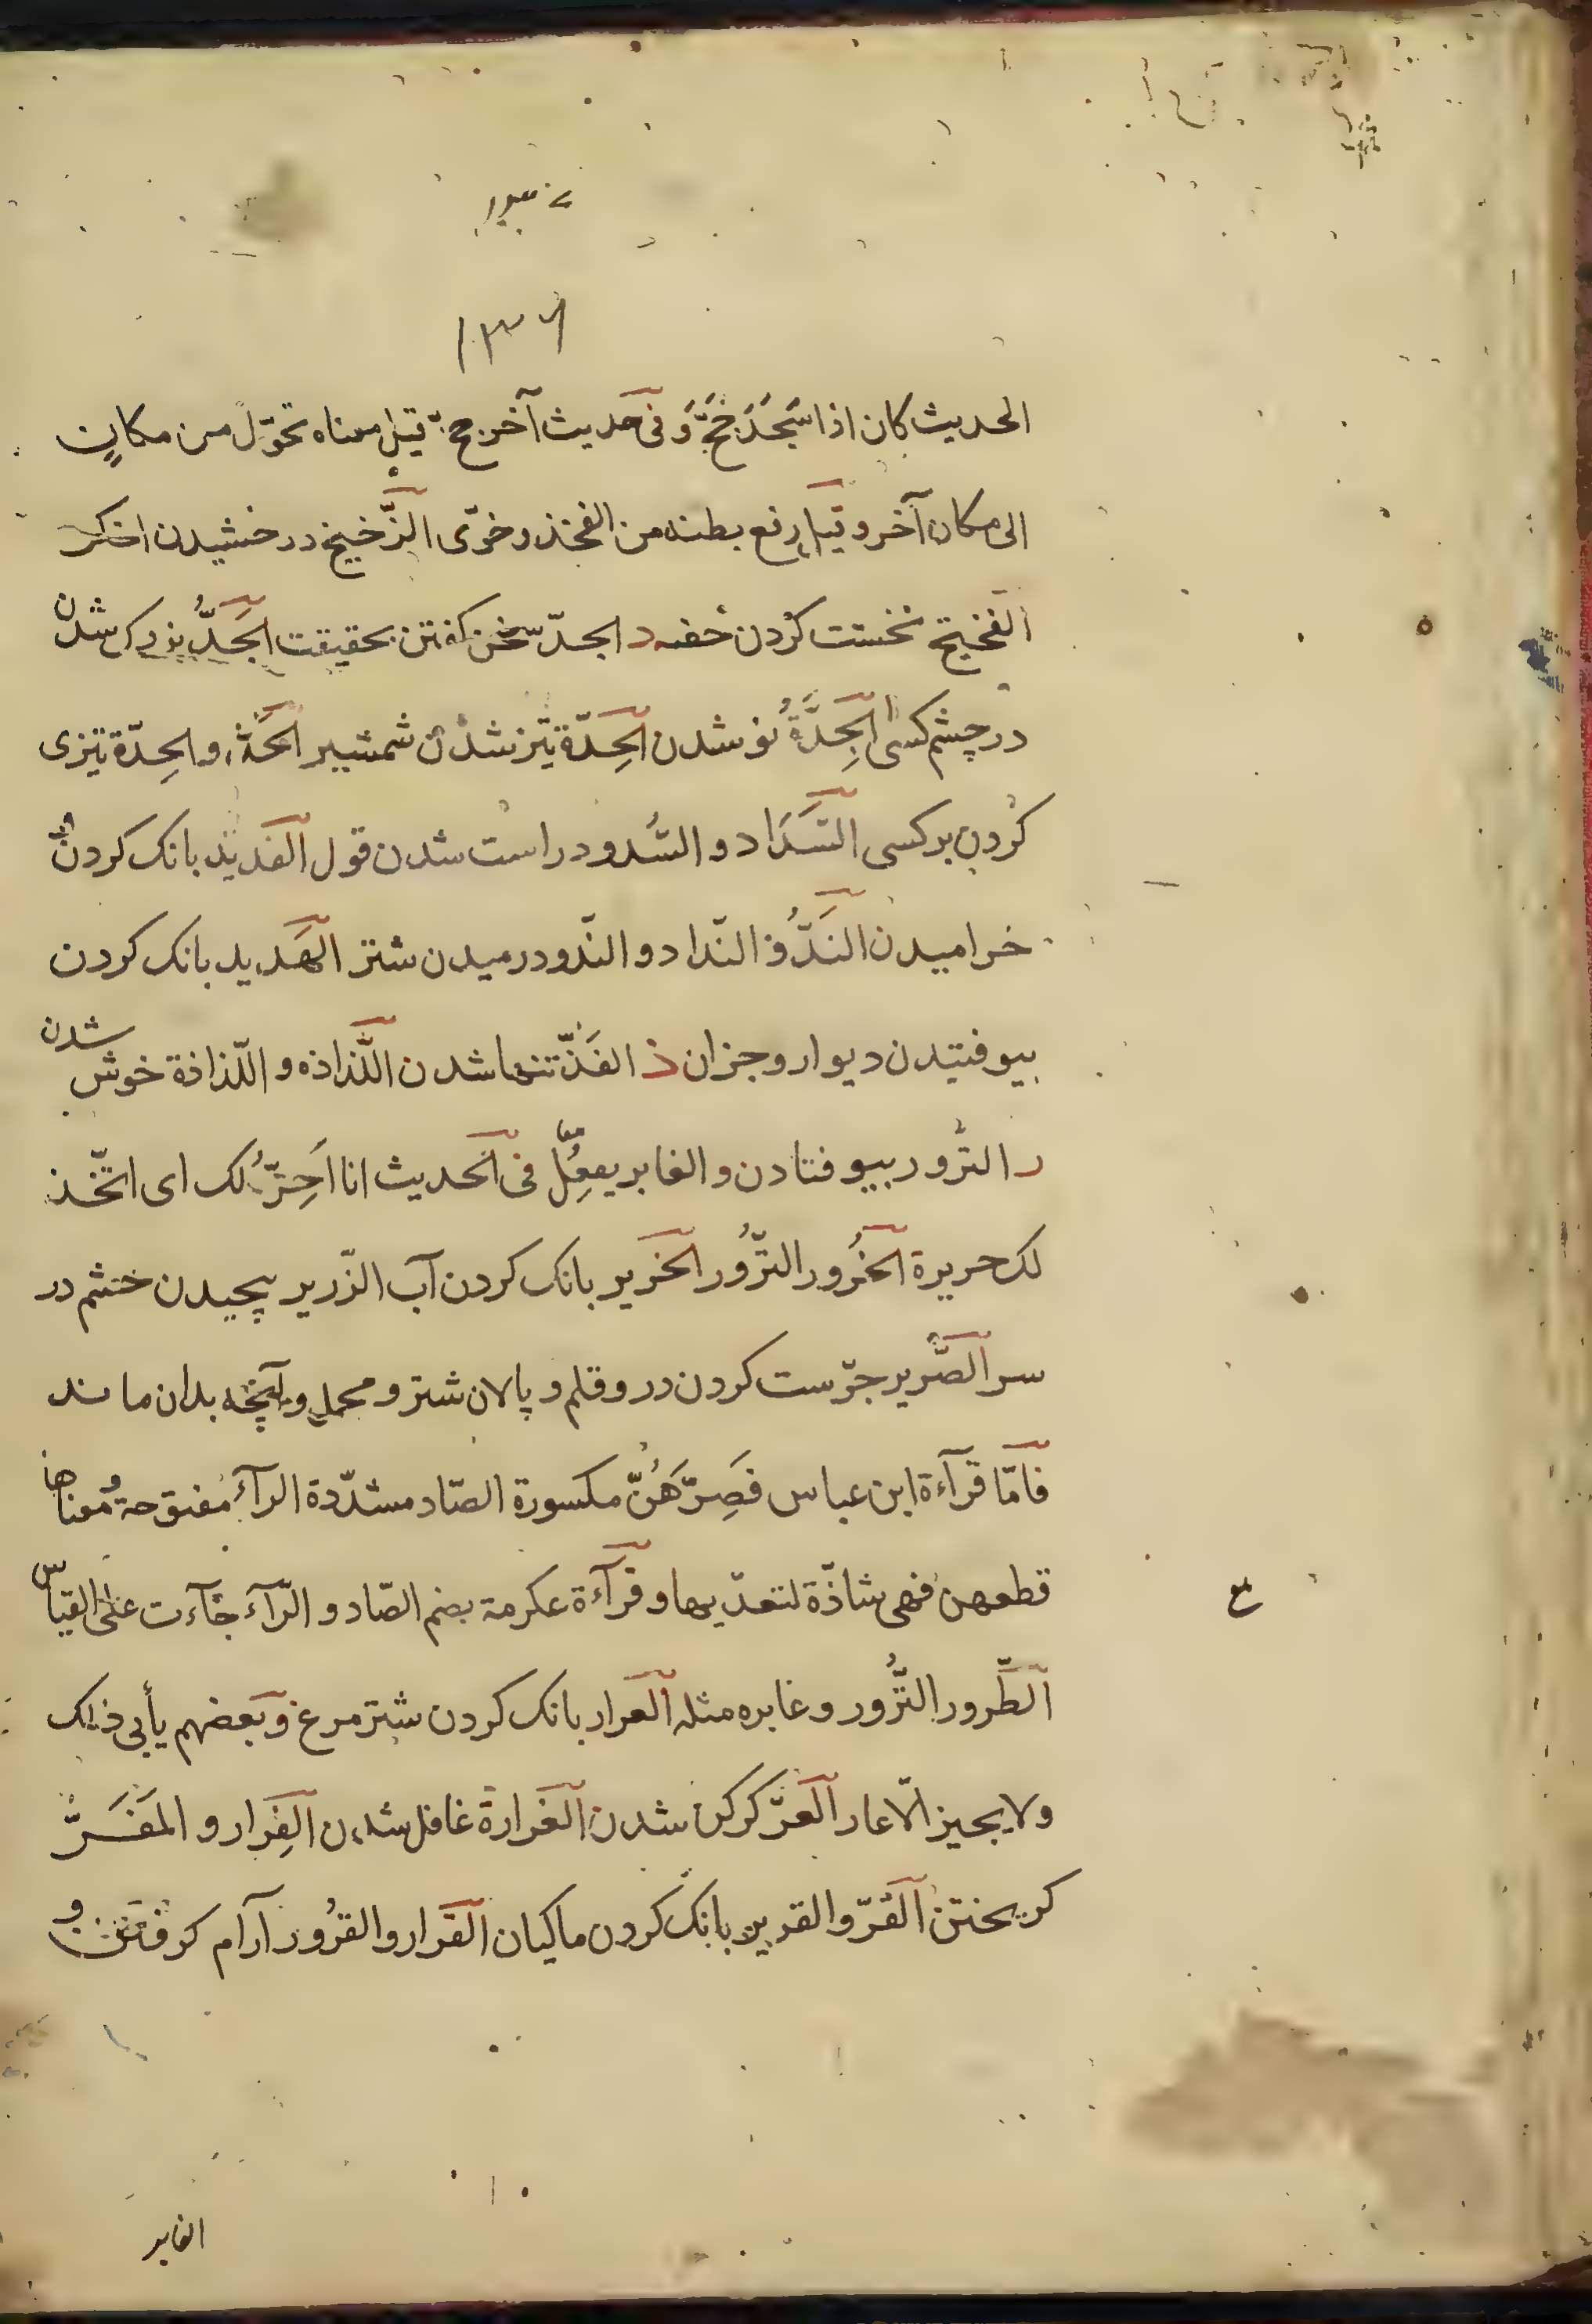 ۱۳۶
الحدیث کان اذا سَجَدَ جَخَّ وَ فی حدیث آخر جخّ قیل معناه تحوّل من مکانٍ
الی مکان آخر و قیل رفع بطنه من الفخذ و خوّی الزّخیخ درخشیدن اخکر
الفخیخ نخست کردن خفته د الجدّ سخن کفتن بحقیقت الجَدُّ بزرک شدن
در چشم کسی الجِدَّةُ نو شدن الحِدّة تیز شدن شمشیر الحَدُّ و الحِدّة تیزی
کردن بر کسی السَّدَاد و السُّدود راست شدن قول الفدید بانک کردن
خرامیدن النَدُّ و النّداد و النّدود رمیدن شتر الهَدید بانک کردن
بیوفتیدن دیوار و جزان ذ الفَذّ تنها شدن اللّذاذه و اللّذاذة خوش شدن
ر التّرور بیوفتادن و الغابر یفعِل فی الحدیث انا اَحِرُّ لک ای اتّخذ
لک حریرة الخُرور التّرُور الخریر بانک کردن آب الزّریر پچیدن خشم در
سر الصّریر جرّست کردن در و قلم و پالان شتر و محمل و آنچه بدان ماند
فامّا قرآءة ابن عباس فَصِرَّهُنَّ مکسورة الصّاد مشدّدة الرآء مفتوحة و معناها
قطعهن فهی شاذّة لتعدّیها و قرآءة عکرمة بضم الصّاد و الرّآء جآءت علی القیاس
الطّرور التّرُور و غابره مثله العرار بانک کردن شترمرغ و بعضهم یأبی ذلک
ولا یجیز الّا عار العَرّ کرکن شدن الغَرارة غافل شدن الفِرار و المَفَرُّ
کریختن القَرّ و القریر بانک کردن ماکیان القَرار و القرُور آرام کرفتن و
الغابر